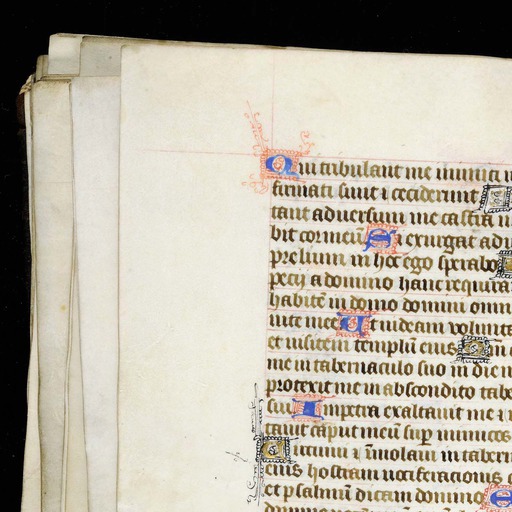 Qui tribulant me inimici
firmati sunt i ceciderunt
tant adversum me castra n
bit cor meū Si exurgat adu
prelium in hoc ego sperabo
petii a domino hanc requira
habitē in domo domini omni
vite mee Ut videam volunta
et visitem templū eius
me in tabernaculo suo in die m
protexit me in abscondito tabe
sui In petra exaltavit me
tavit caput meū sup inimicos
ircuivi i īmolavi in tabern
eius hostiam vociferacionis
et psalmum dicam domino